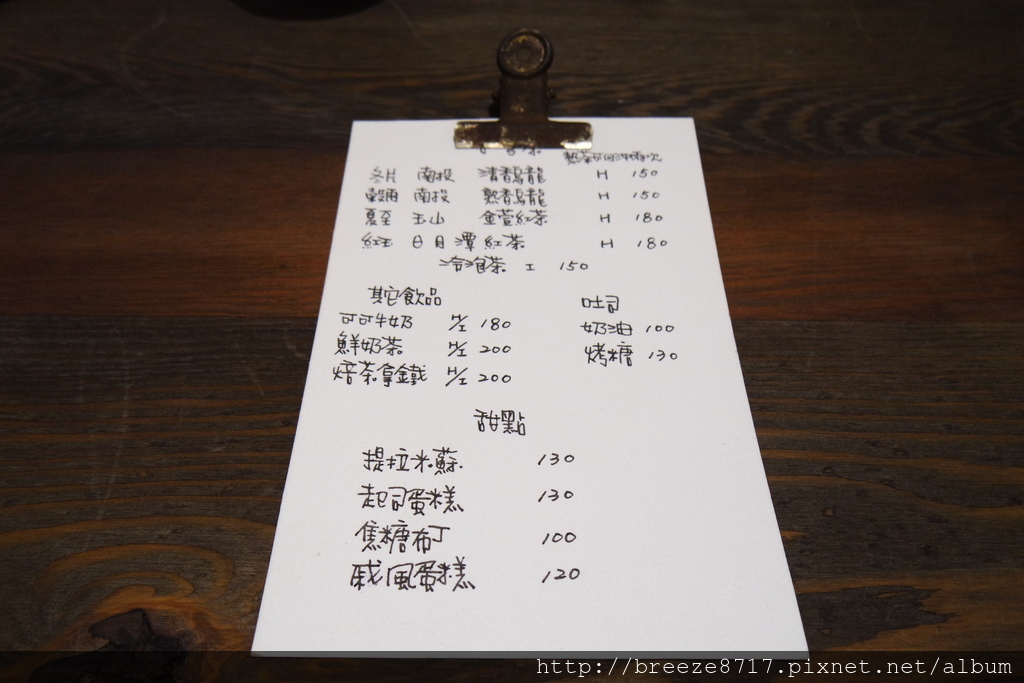 熱茶可回沖兩次
冬片 南投 清香烏龍 H 150
穀雨 南投 熟香烏龍 H 150
夏至 玉山 金萱紅茶 H 180
紅玉 日月潭紅茶 H 180
冷泡茶 I 150
其它飲品
可可牛奶 H/I 180
鮮奶茶 H/I 200
焙茶拿鐵 H/I 200
吐司
奶油 100
烤糖 130
甜點
提拉米蘇 130
起司蛋糕 130
焦糖布丁 100
戚風蛋糕 120
http://breeze8717.pixnet.net/album